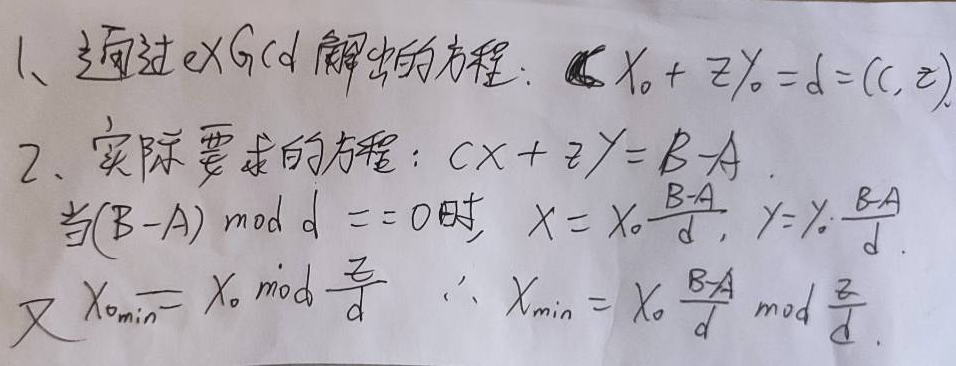 1、通过exGcd解出的方程：C X₀ + ZY₀ = d = (C, Z).
2、实际要求的方程：CX + ZY = B-A.
当(B-A) mod d == 0时, X = X₀ \frac{B-A}{d}, Y = Y₀·\frac{B-A}{d}.
又 X₀min = X₀ mod \frac{Z}{d} ∴ Xmin = X₀ \frac{B-A}{d} mod \frac{Z}{d}.